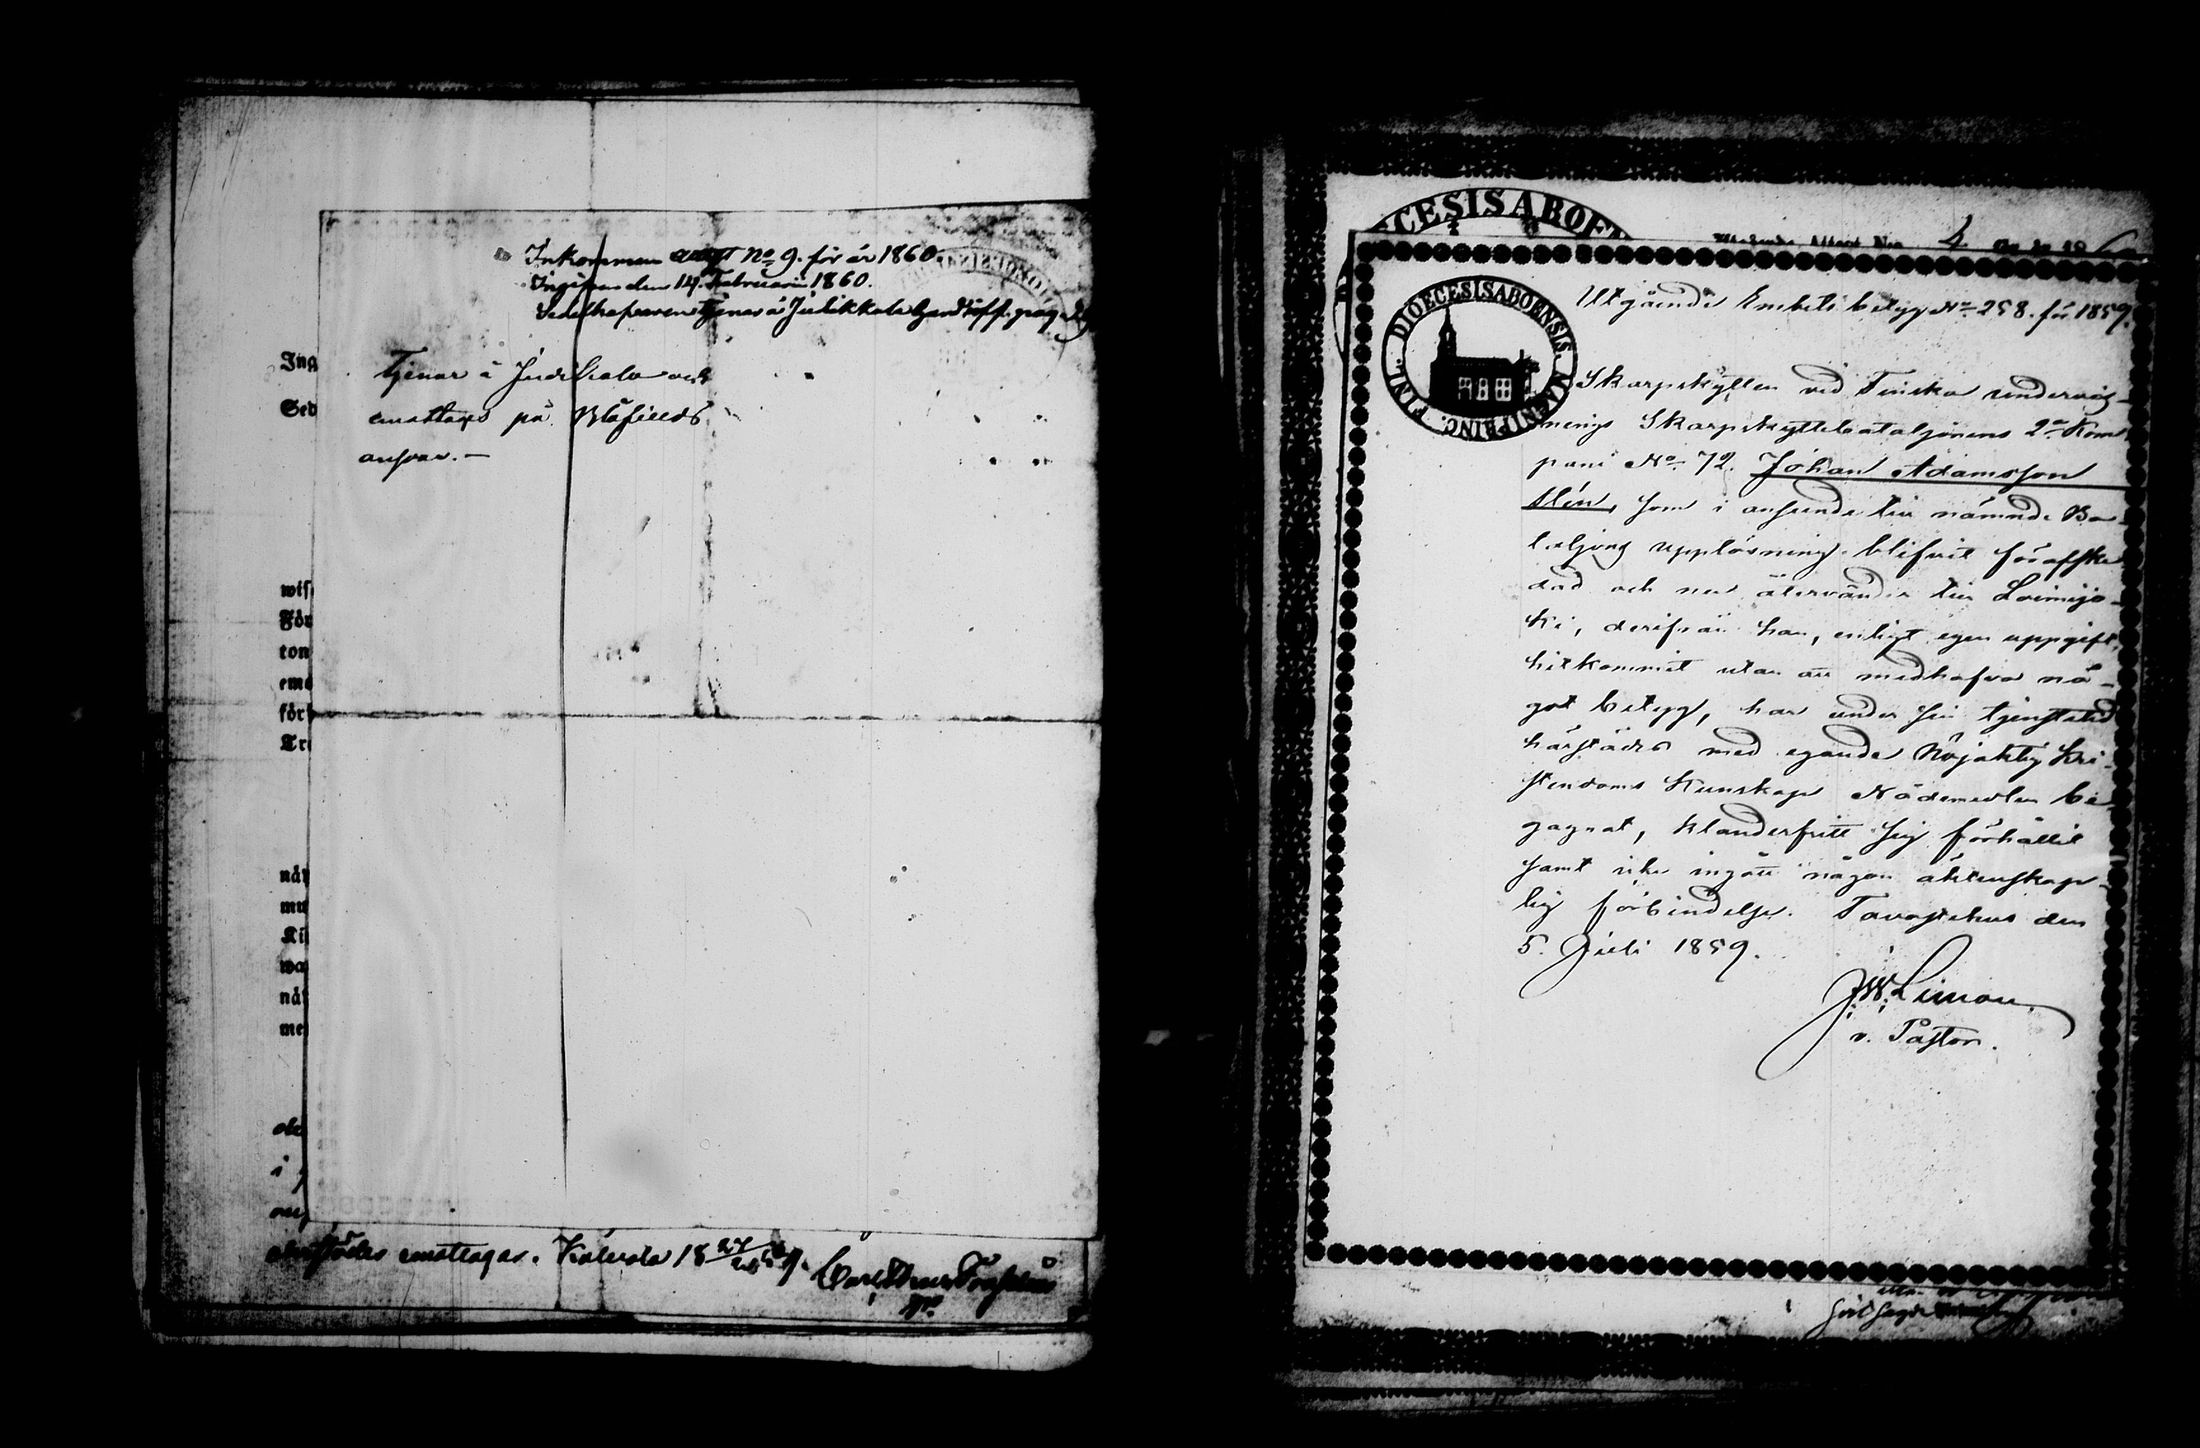 Inkommen attest No 9. för år 1860.
Ingifven den 14. Februari 1860.
tjenar å
Ing
Sed
Tjenar å och
emottages på
ansvar. —
wis
För
ton
emo
för
Tre
nåt
mu
Ki
wa
nåt
me
i
emottages. Kalvola 18
Carl
CESISABOE
Utgående Attest No 4
DIOECESIS ABOENSIS. MAGNI PRINC. FINL.
Utgående Embets betyg No 258. för 1859.
Skarpskytten vid Finska undervis-
nings Skarpskyttebataljonens 2a Kom-
pani No 72. Johan Adamsson
Slén, som i anseende till nämnde Ba-
taljons upplösning blifvit förafske-
dad och nu återvänder till Loimijo-
ki, derifrån han, enligt egen uppgift,
hitkommit utan att medhafva nå-
got betyg, har under sin tjenstetid
härstädes med egande Nöjaktig Kri-
stendoms Kunskap Nådemedlen be-
gagnat, klanderfritt sig förhållit
samt icke ingått någon äktenskap-
lig förbindelse. Tavastehus den
5. Juli 1859.
J. W. Limon
v. Pastor.